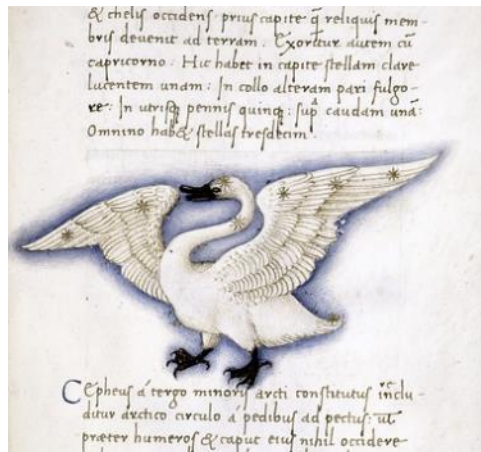 & chelis occidens· prius capite q̃ reliquis mem-
bris devenit ad terram· Exoritur autem cũ
capricorno· Hic habet in capite stellam clare
lucentem unam: In collo alteram pari fulgo-
re· In utrisq; pennis quinq;: sup̃ caudam unã:
Omnino hab& stellas tresdecim·
Cepheus á tergo minoris arcti constitutus inclu-
ditur arctico circulo á pedibus ad pectus: ut
præter humeros & caput eius nihil occidere